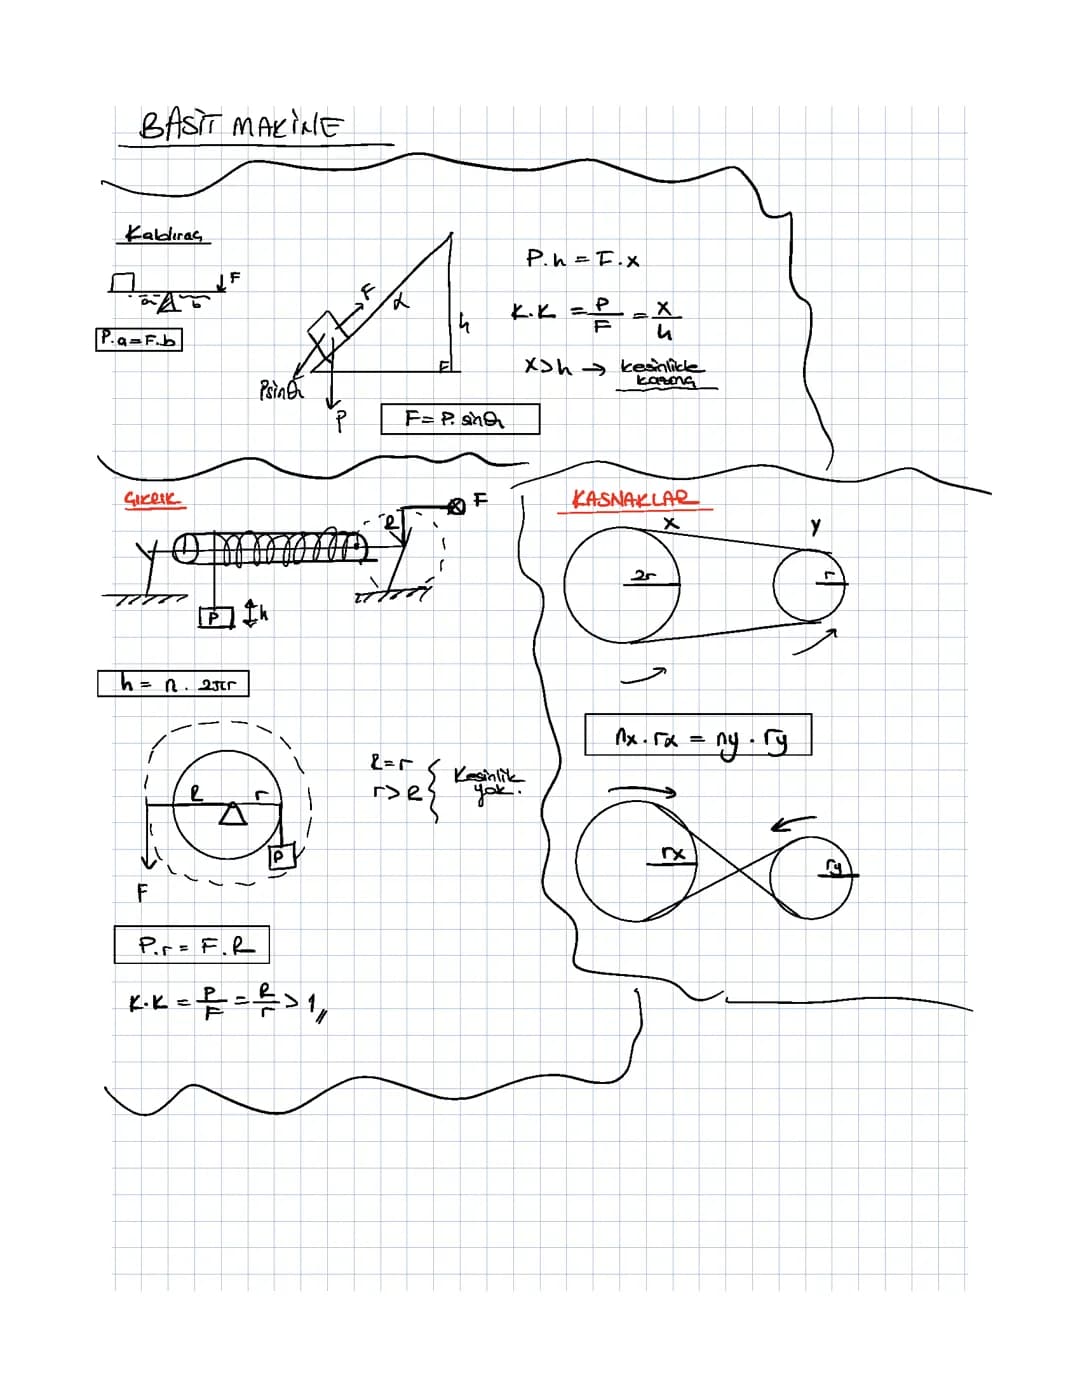 BASİT MAKİNE
Kaldıraç
F
a b
P.a=F.b
F
x
h
Psinθ
P
F= P. sinθ
P.h = F.x
K.K = P/F = x/h
x>h → kesinlikle
kazanç
ÇIKRIK
R
F
P
h
h = n. 2πr
R r
P
F
R=r
r>R
Kesinlik
yok.
P.r = F.R
K.K = P/F = R/r > 1,,
KASNAKLAR
x
y
2r
r
nx.rx = ny.ry
rx
ry